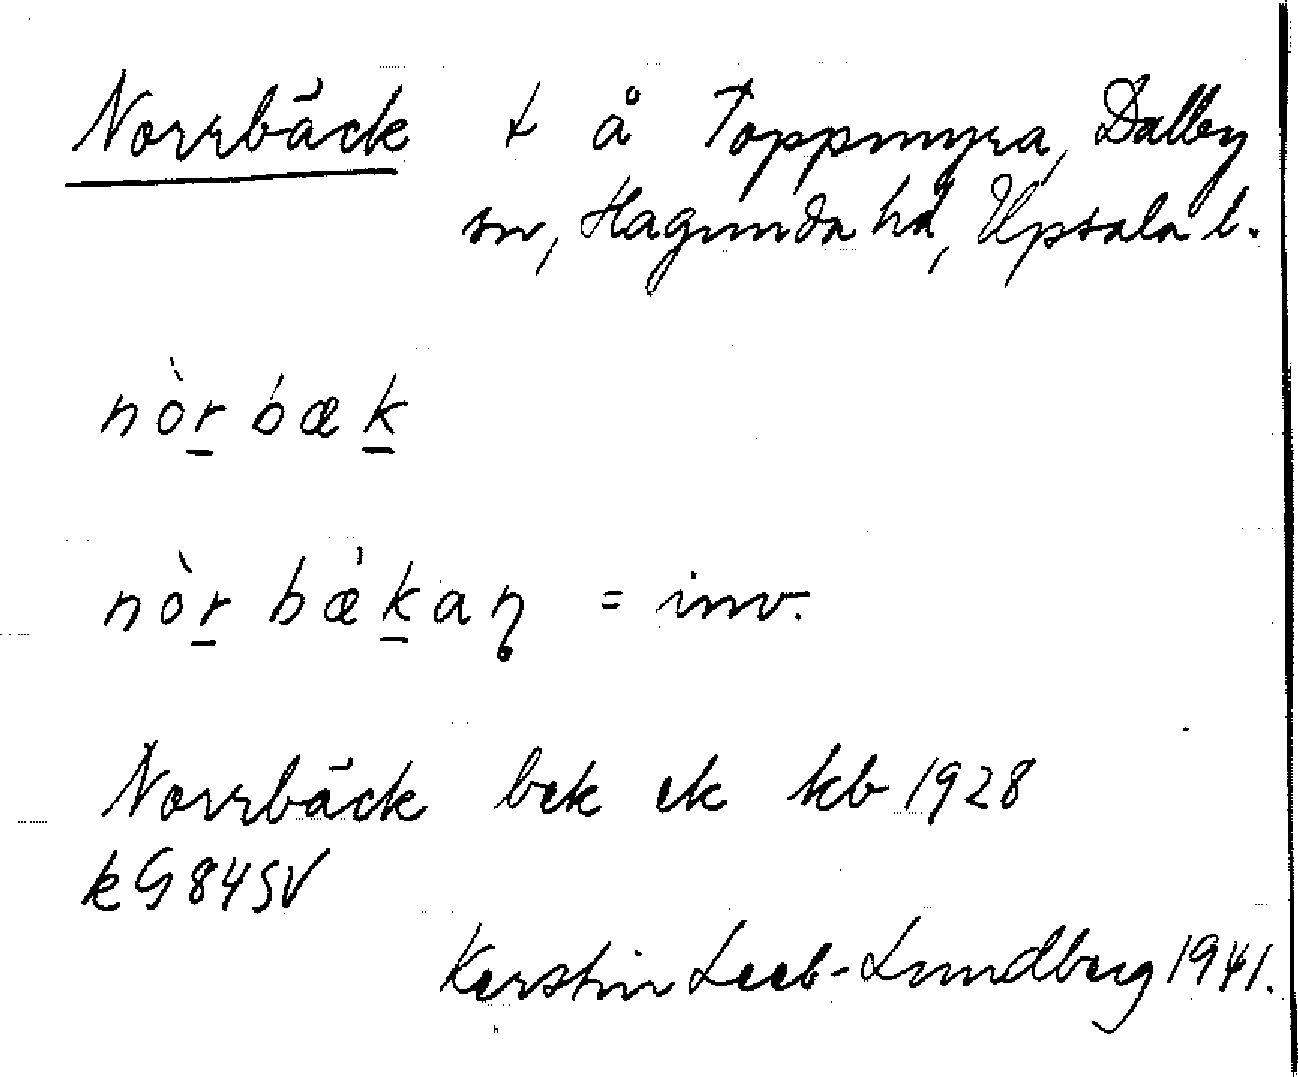 Norrbäck t å Toppmyra, Dalby
sn, Hagunda hd, Upsala l.
nòr̲bæk̲
nòr̲bæ̀k̲aŋ = inv.
Norrbäck bek ek kb 1928
k G 84 SV
Kerstin Leeb-Lundberg 1941.